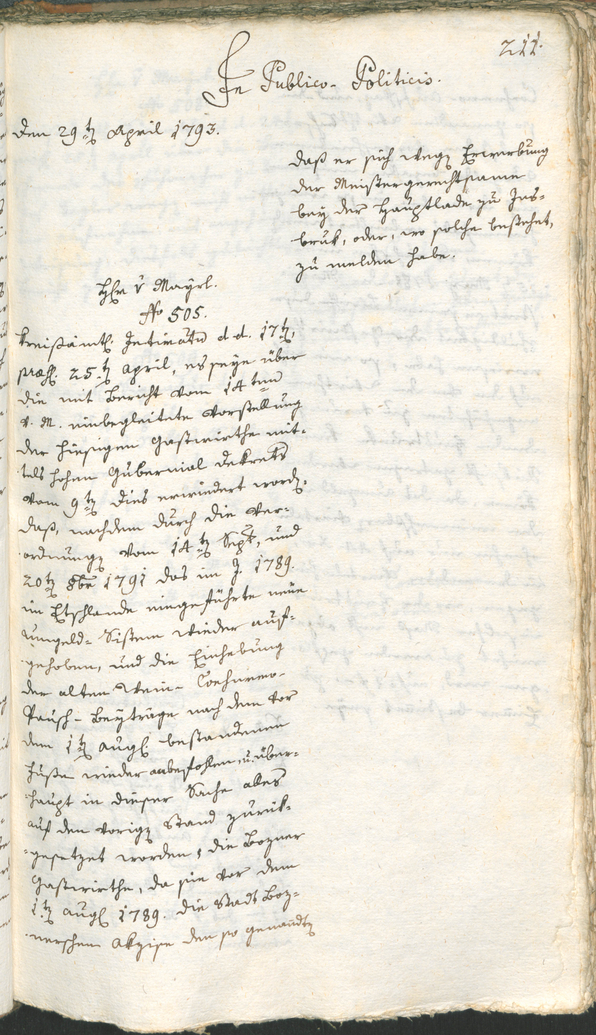 211.
In Publico-Politicis.
den 29t. April 1793.
daß er sich weg. Erwerbung
der Meistergerechtsame
bey der Hauptlade zu Jns-
bruk, oder, wo solche bestehet,
zu melden habe.
Hr. v Mayrl.
No 505.
Kreisämtl. Intimatn d. d. 17t.
præs. 25t. April, es seye über
die mit Bericht vom 14ten
v. M. einbegleitete Vorstellung
der hiesigen Gastwirthe mit-
tels hohen Gubernial Dekrets
vom 9t. dies erwiedert word.
daß, nachdem durch die Ver-
ordnung. vom 14t. Sept. und
20t. 8br 1791 das im J. 1789.
im Etschlande eingeführte neue
Umgeld-Sistem wieder auf-
gehoben, und die Einhebung
der alten Wein-
Pausch-Beyträge nach dem vor
dem 1t. Aug. bestandenen
Fuße wieder anbefohlen, u. über-
haupt in dieser Sache alles
auf den vorig. Stand zurük-
gesetzet worden, die Bozner
Gastwirthe, da sie vor dem
1t. Aug. 1789. die Stadt Boz-
nerschem Akzise den so genandt.